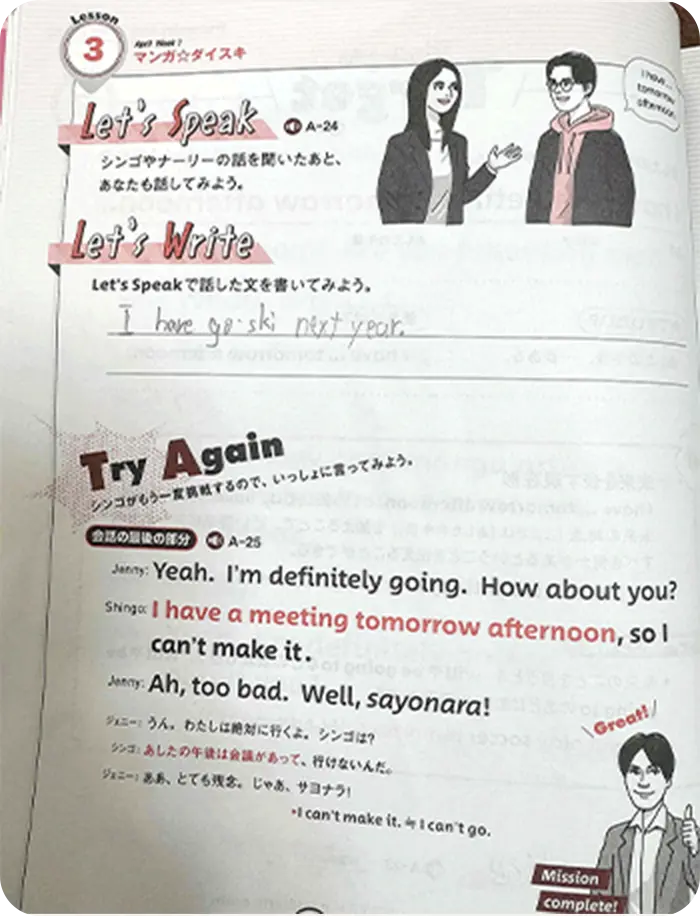 Lesson
3
April Week 1
マンガ☆ダイスキ
I have...
tomorrow
afternoon.
Let's Speak
A-24
シンゴやナーリーの話を聞いたあと、
あなたも話してみよう。
Let's Write
Let's Speakで話した文を書いてみよう。
I have go ski next year.
Try Again
シンゴがもう一度挑戦するので、いっしょに言ってみよう。
会話の最後の部分
A-25
Jenny: Yeah. I'm definitely going. How about you?
Shingo: I have a meeting tomorrow afternoon, so I
can't make it.
Jenny: Ah, too bad. Well, sayonara!
ジェニー: うん。わたしは絶対に行くよ。シンゴは?
シンゴ: あしたの午後は会議があって、行けないんだ。
ジェニー: ああ、とても残念。じゃあ、サヨナラ!
*I can't make it. ≒ I can't go.
Great!
Mission
complete!